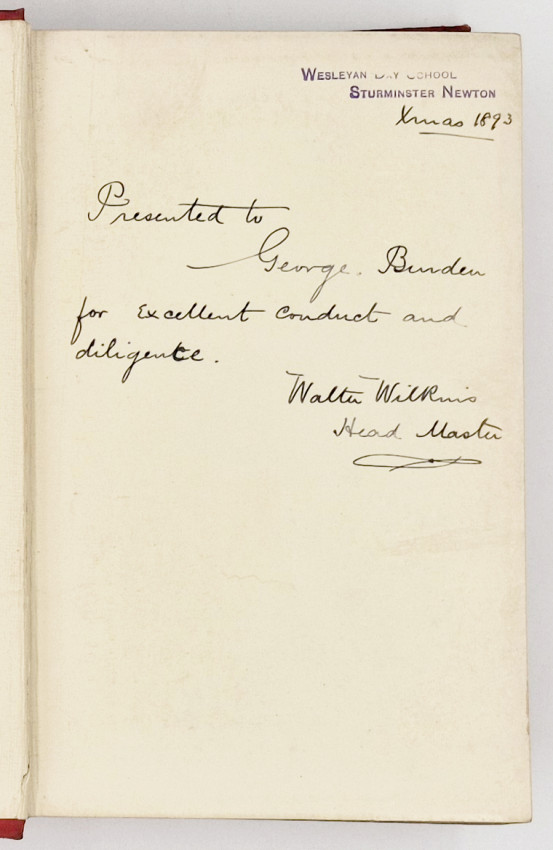 WESLEYAN DAY SCHOOL
STURMINSTER NEWTON
Xmas 1893
Presented to
George Burden
for Excellent conduct and
diligence.
Walter Wilkins
Head Master